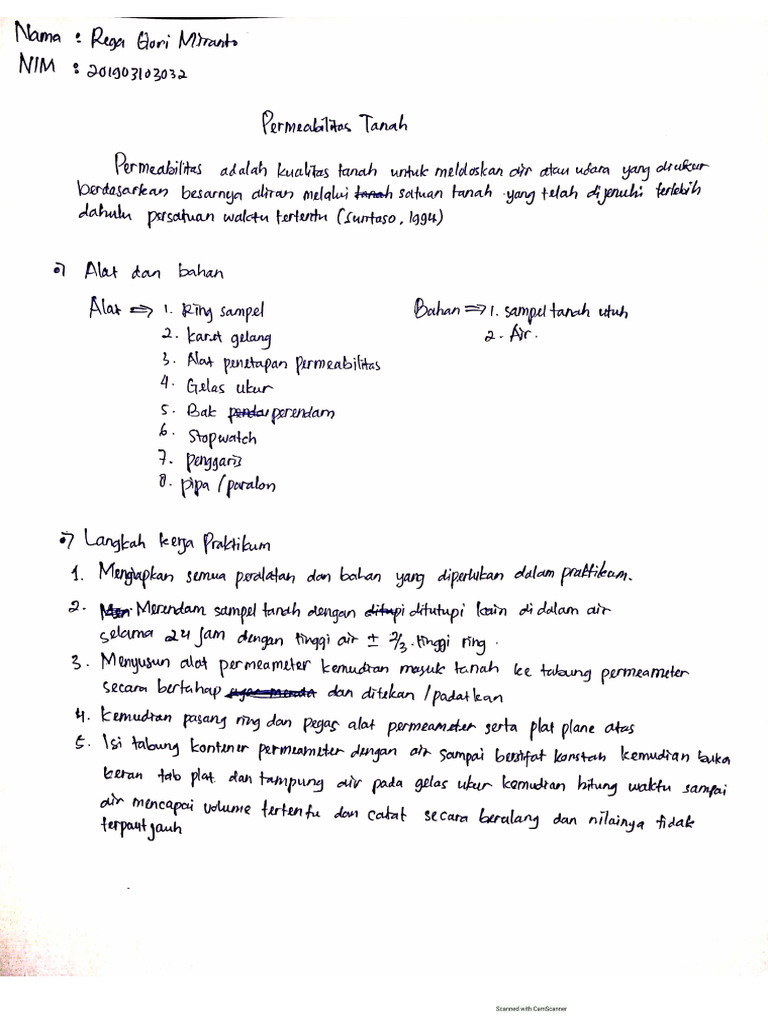 Nama : Rega Glori Miranto
NIM : 201903103032
Permeabilitas Tanah
Permeabilitas adalah kualitas tanah untuk meloloskan air atau udara yang diukur
berdasarkan besarnya aliran melalui tanah satuan tanah yang telah dijenuhi terlebih
dahulu persatuan waktu tertentu (Suntaso, 1994)
o) Alat dan bahan
Alat => 1. Ring sampel
Bahan => 1. sampel tanah utuh
2. Karet gelang
2. Air.
3. Alat penetapan permeabilitas
4. Gelas ukur
5. Bak perendam
6. Stopwatch
7. penggaris
8. pipa / paralon
o) Langkah kerja Praktikum
1. Mengiapkan semua peralatan dan bahan yang diperlukan dalam praktikum.
2. Merendam sampel tanah dengan ditutupi kain di dalam air
selama 24 jam dengan tinggi air ± 2/3 tinggi ring.
3. Menyusun alat permeameter kemudian masuk tanah ke tabung permeameter
secara bertahap dan ditekan / padatkan
4. Kemudian pasang ring dan pegas alat permeameter serta plat plane atas
5. Isi tabung kontener permeameter dengan air sampai bersifat konstan kemudian buka
keran tab plat dan tampung air pada gelas ukur kemudian hitung waktu sampai
air mencapai volume tertentu dan catat secara beralang dan nilainya tidak
terpaut jauh
Scanned with CamScanner